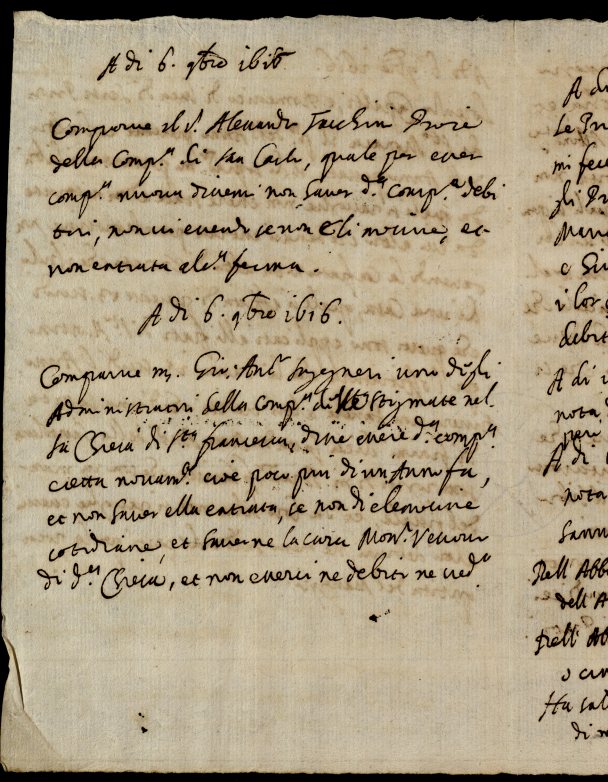 A di 6. 9bre 1616
Comparue il s. Alexandro Facchini Priore
della Comp.a di san Carlo, quale per esser
comp.a nuova dicerui non hauer d.a comp.a debi
tori, non ui essendo se non elimosine, et
non entrata alc.a ferma.
A di 6. 9bre 1616.
Comparue m. Gio: Ant.o Ingegneri uno degli
Administratori della comp.a di stigmate nel
la Chiesa di s.to francesco, dice essere d.a comp.a
eretta nouam.te cioè poco più di un Anno fa,
et non hauer ella entrata, se non di elemosine
cotidiane, et hauerne la cura Mons.r Vescouo
di d.a Chiesa, et non esserci ne debiti ne
A di
Le Pr
mi fec
gli Pr
Mari
e Gi
i lor
debit
A di
nota
A di
nota
Dell' Abb
dell' A
Dell' Ab
Ha sal
di